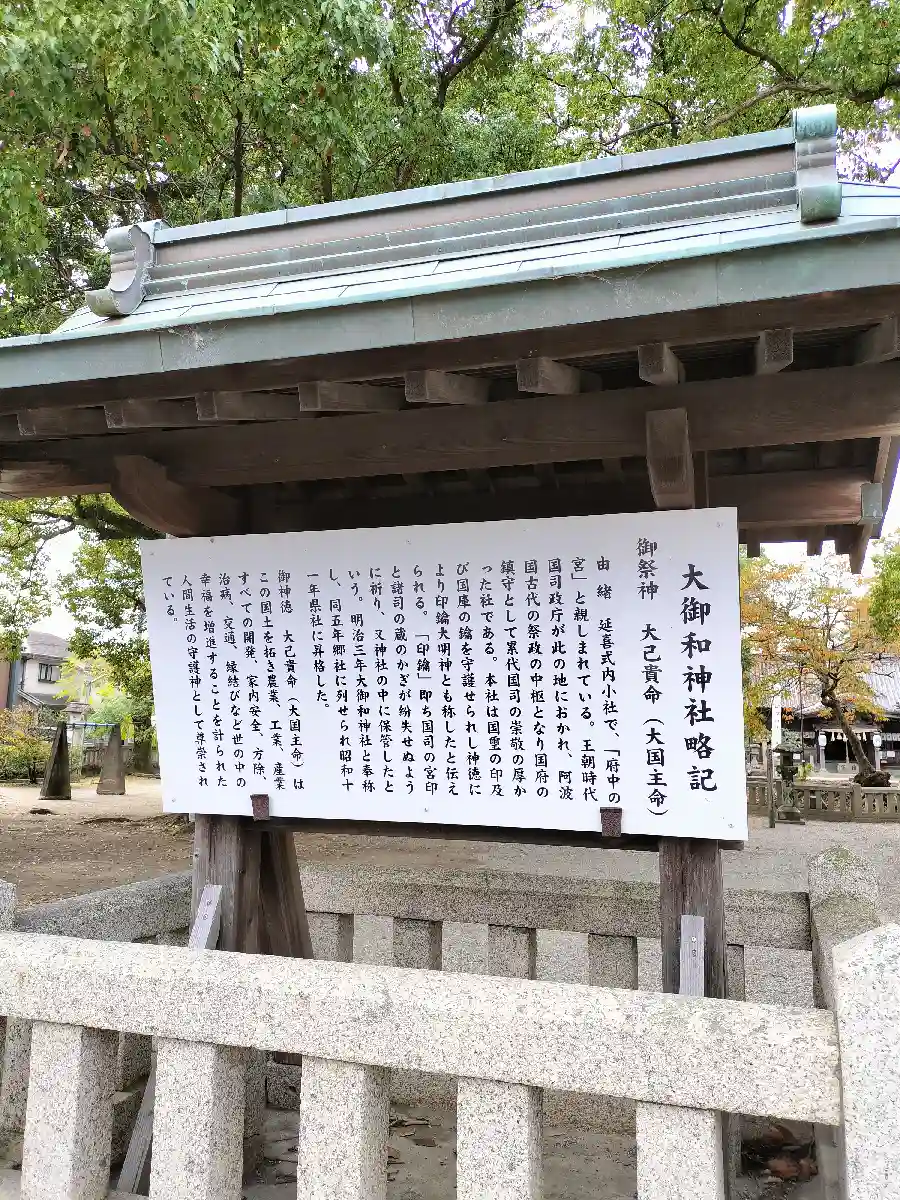 大御和神社略記
御祭神　大己貴命（大国主命）
由緒　延喜式内小社で、「府中の
宮」と親しまれている。王朝時代
国司政庁が此の地におかれ、阿波
国古代の祭政の中枢となり国府の
鎮守として累代国司の崇敬の厚か
った社である。本社は国璽の印及
び国庫の鑰を守護せられし神徳に
より印鑰大明神とも称したと伝え
られる。「印鑰」即ち国司の宮印
と諸司の蔵のかぎが紛失せぬよう
に祈り、又神社の中に保管したと
いう。明治三年大御和神社と奉称
し、同五年郷社に列せられ昭和十
一年県社に昇格した。
御神徳　大己貴命（大国主命）は
この国土を拓き農業、工業、産業
すべての開発、家内安全、方除、
治病、交通、縁結びなど世の中の
幸福を増進することを計られた
人間生活の守護神として尊崇され
ている。